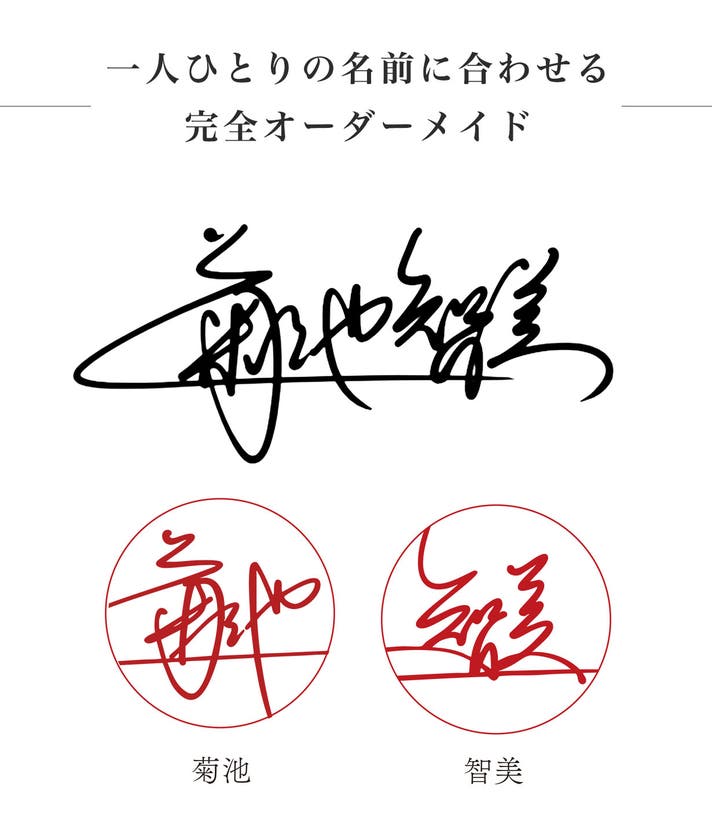 一人ひとりの名前に合わせる
完全オーダーメイド
菊池智美
菊池
智美
菊池
智美